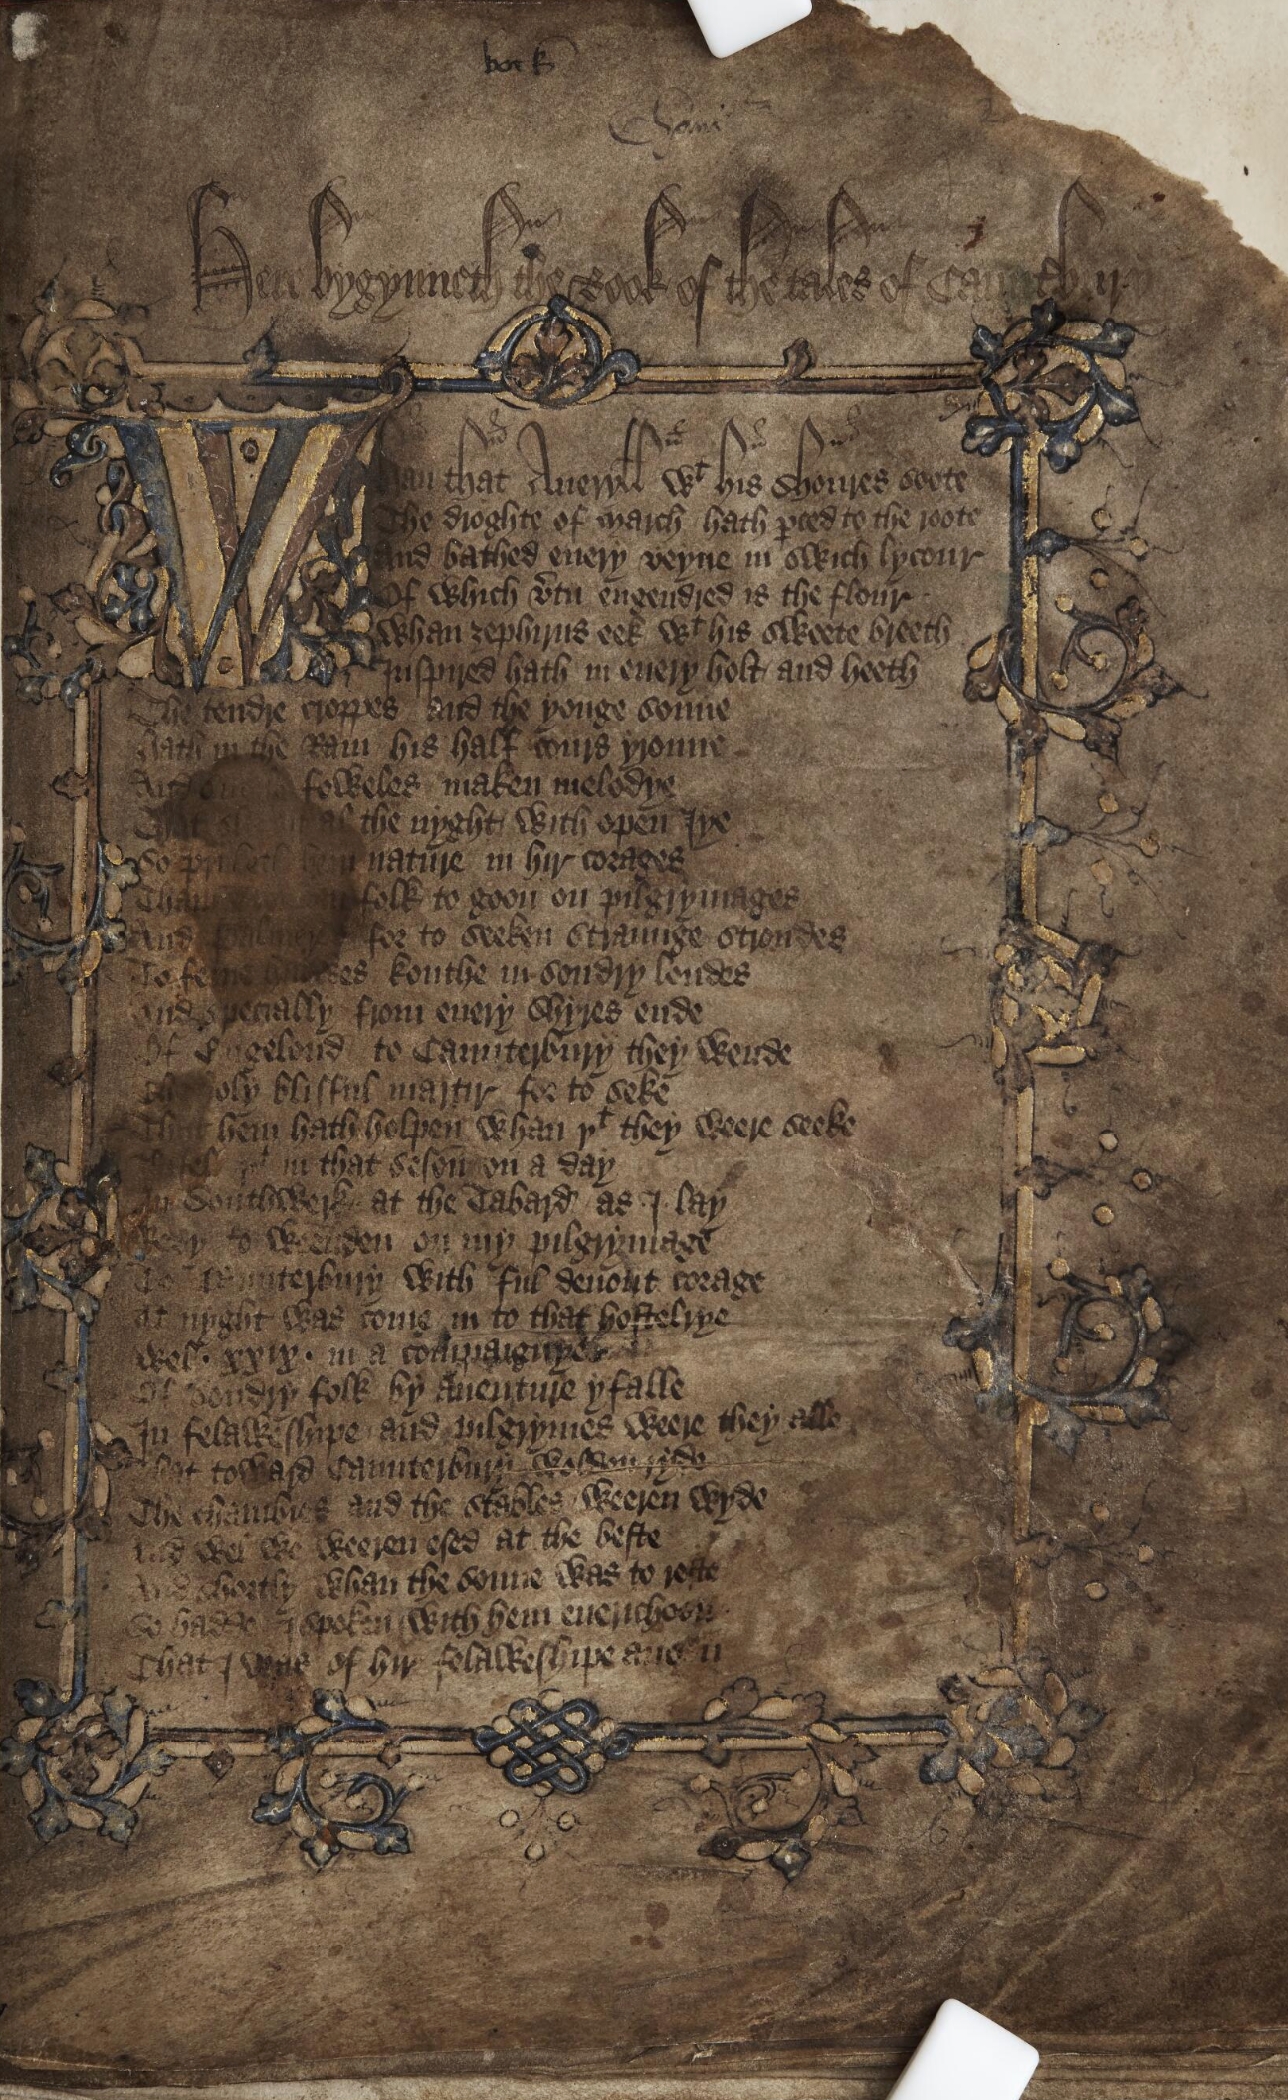 book
Here bygynneth the Book of the tales of Caunterbury
Whan that Aueryll wt his shoures soote
The droghte of march hath pced to the roote
And bathed euery veyne in swich lycour
Of which vtu engendred is the flour
Whan zephirus eek wt his sweete breeth
Inspired hath in euery holt and heeth
The tendre croppes and the yonge sonne
hath in the Ram his half cours yronne
And foweles maken melodye
That al the nyght with open Iye
So priketh hem nature in hir corages
folk to goon on pilgrymages
And Palmeres for to seeken straunge strondes
To ferne halwes kouthe in sondry londes
And specially from euery shyres ende
Of Engelond to Caunterbury they wende
The holy blisful martir for to seke
That hem hath holpen whan yt they weere seeke
Bifel yt in that seson on a day
In Southwerk at the Tabard as I lay
Redy to weenden on my pilgrymage
To Caunterbury with ful deuout corage
At nyght was come in to that hostelrye
wel · xxix · in a compaignye
Of sondry folk by auenture yfalle
In felaweshipe and pilgrymes weere they alle
That toward Caunterbury wolden ryde
The chambres and the stables weeren wyde
And wel we weeren esed at the beste
And shortly whan the sonne was to reste
So hadde I spoken with hem euerichon
That I was of hir felaweshipe anon